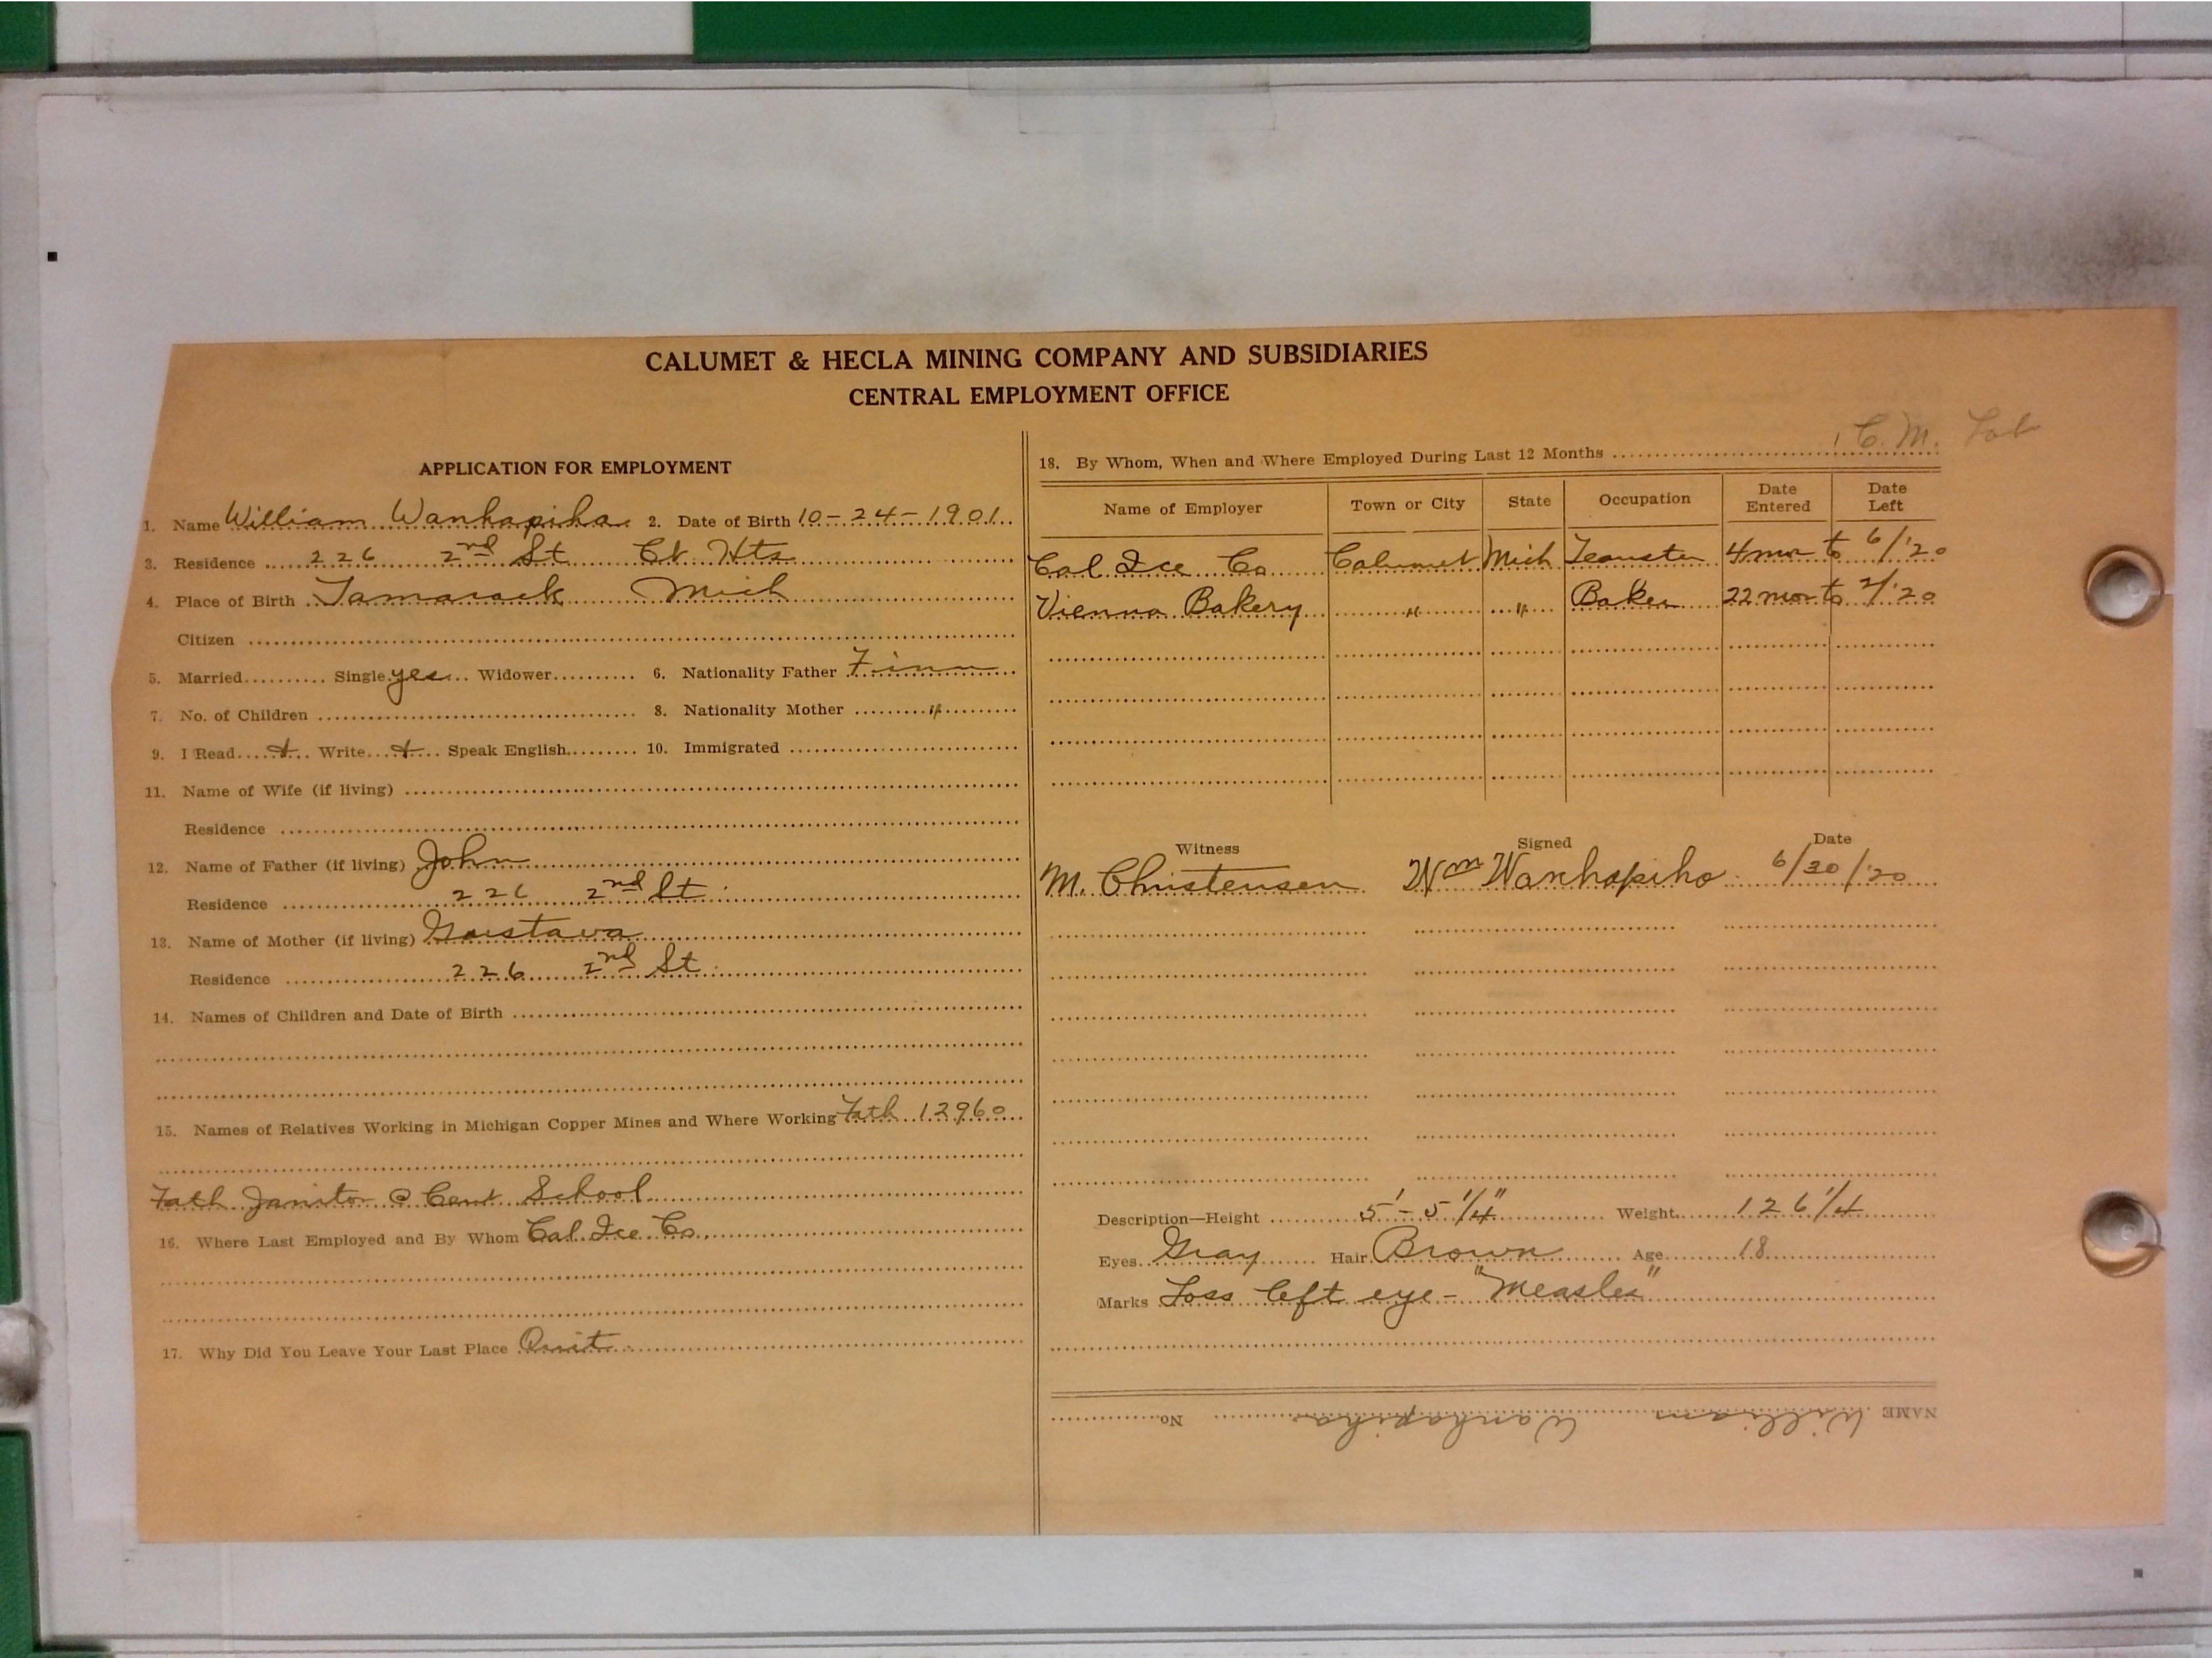 CALUMET & HECLA MINING COMPANY AND SUBSIDIARIES
CENTRAL EMPLOYMENT OFFICE
APPLICATION FOR EMPLOYMENT
1. Name William Wanhapiha 2. Date of Birth 10-24-1901
3. Residence 226 2nd St Ct. Hts
4. Place of Birth Tamarack Mich
Citizen
5. Married Single yes Widower 6. Nationality Father Finn
7. No. of Children 8. Nationality Mother "
9. I Read + Write + Speak English 10. Immigrated
11. Name of Wife (if living)
Residence
12. Name of Father (if living) John
Residence 226 2nd St
13. Name of Mother (if living) Gustava
Residence 226 2nd St
14. Names of Children and Date of Birth
15. Names of Relatives Working in Michigan Copper Mines and Where Working Fath 12960
Fath Janitor @ Cent School
16. Where Last Employed and By Whom Cal. Ice Co.
17. Why Did You Leave Your Last Place Quit
C. M.
18. By Whom, When and Where Employed During Last 12 Months
Name of Employer Town or City State Occupation Date Entered Date Left
Cal Ice Co Calumet Mich Teamster 4 mon to 6/'20
Vienna Bakery " " Baker 22 mon to 2/'20
Witness Signed Date
M. Christensen Wm Wanhapiho 6/30/'20
Description—Height 5'-5 1/4" Weight 126 1/4
Eyes Gray Hair Brown Age 18
Marks Loss left eye - "Measles"
NAME William Wanhapiha No.